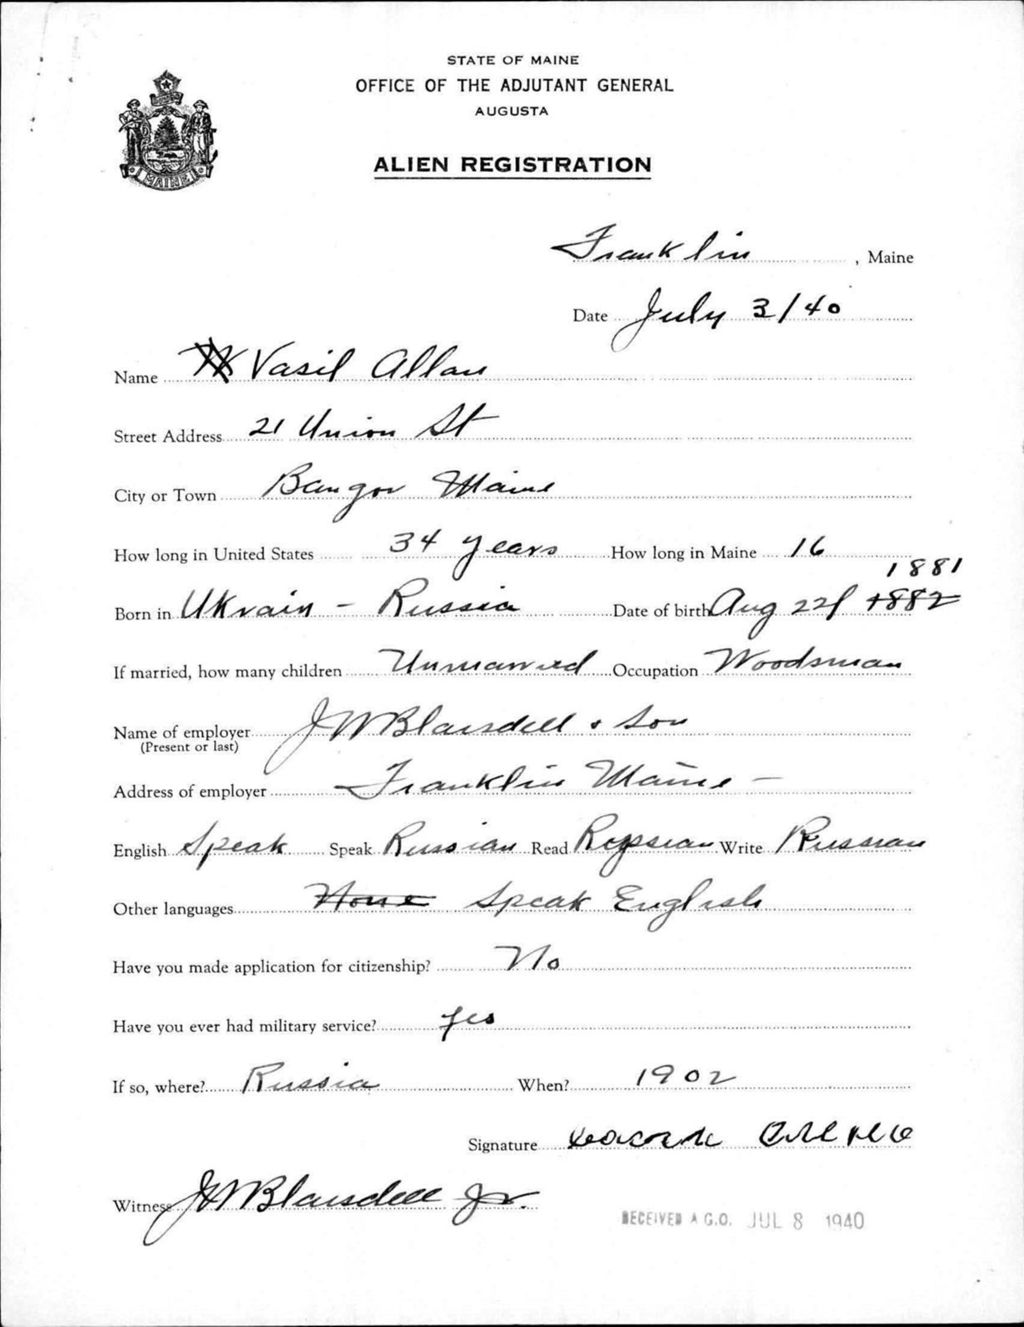 STATE OF MAINE
OFFICE OF THE ADJUTANT GENERAL
AUGUSTA
MAINE
ALIEN REGISTRATION
Franklin, Maine
Date July 3/40
Name Vasil Allan
Street Address 21 Union St
City or Town Bangor Maine
How long in United States 34 years How long in Maine 16
1881
Born in Ukrain - Russia Date of birth Aug 22 1882
If married, how many children Unmarried Occupation Woodsman
Name of employer J W Blaisdell & Son
(Present or last)
Address of employer Franklin Maine -
English Speak Speak Russian Read Russian Write Russian
Other languages None Speak English
Have you made application for citizenship? No
Have you ever had military service? yes
If so, where? Russia When? 1902
Signature
Witness J W Blaisdell Jr.
RECEIVED A.G.O. JUL 8 1940